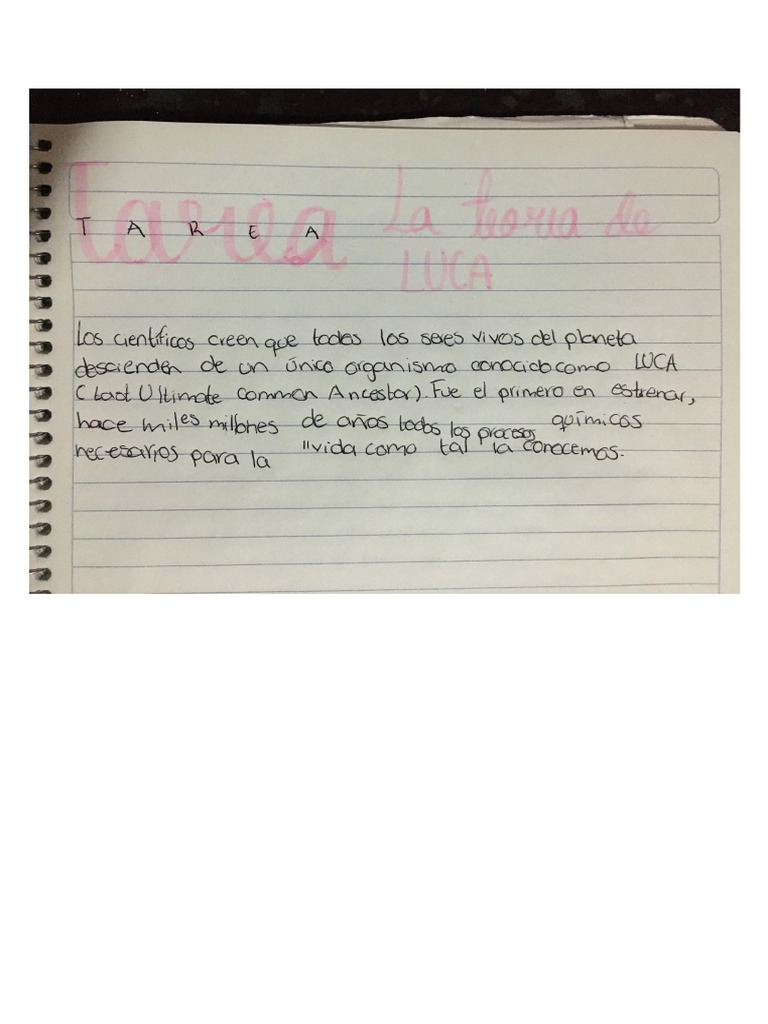 Tarea
T A R E A
La teoria de
LUCA
Los científicos creen que todos los seres vivos del planeta
descienden de un único organismo conocido como LUCA
(Last Ultimate common Ancestor). Fue el primero en estrenar,
hace miles millones de años todos los procesos químicos
necesarios para la "vida como tal la conocemos.